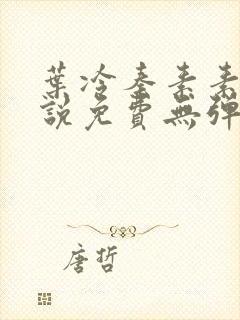 葉冷秦素素
說免費無彈
唐哲